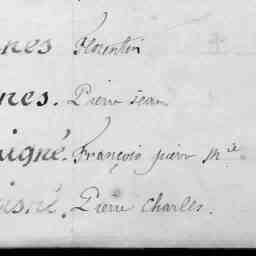 nes Florentin
nes. Pierre Jean
igné. François pierre M.ie
isné. Pierre Charles.